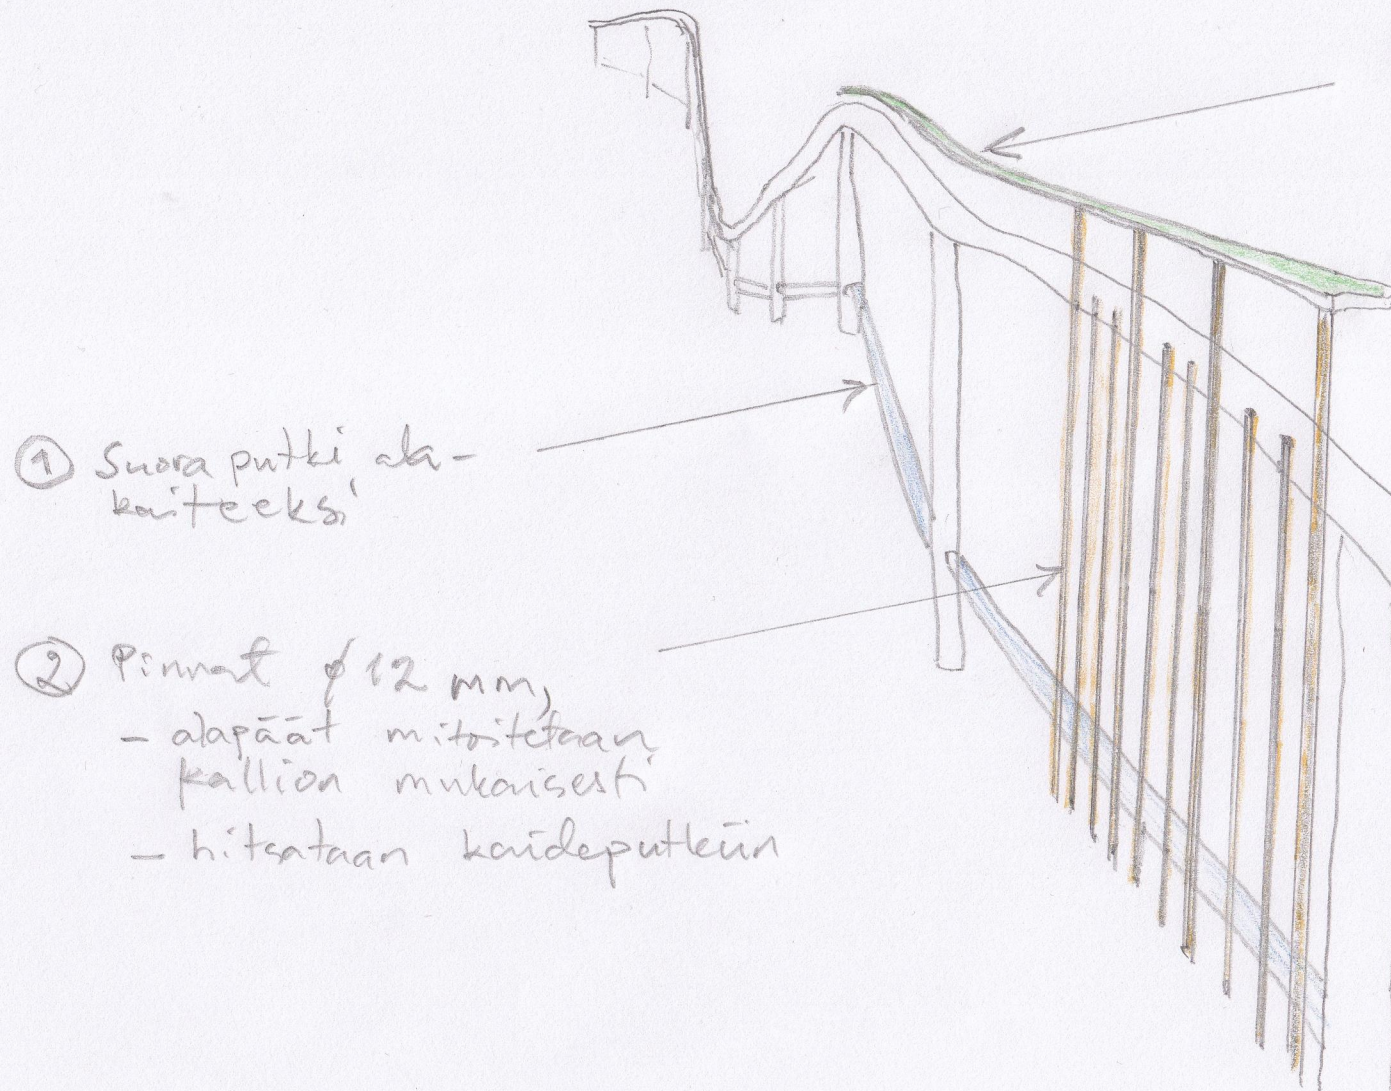 ① Suora putki ala-
kaiteeksi
② Pinnat ϕ 12 mm,
- alapäät mitoitetaan
kallion mukaisesti
- hitsataan kaideputkiin